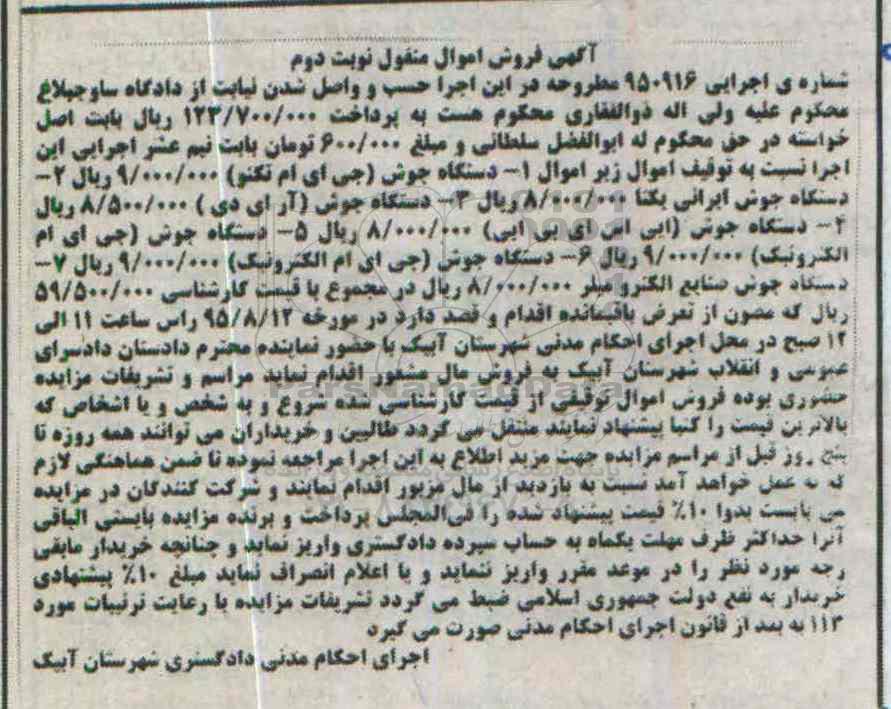 آگهی فروش اموال منقول نوبت دوم
شماره ی اجرایی ۹۵۰۹۱۶ مطروحه در این اجرا حسب و واصل شدن نیابت از دادگاه ساوجبلاغ
محکوم علیه ولی اله ذوالفقاری محکوم هست به پرداخت ۱۲۳/۷۰۰/۰۰۰ ریال بابت اصل
خواسته در حق محکوم له ابوالفضل سلطانی و مبلغ ۶۰۰/۰۰۰ تومان بابت نیم عشر اجرایی این
اجرا نسبت به توقیف اموال زیر اموال ۱- دستگاه جوش (جی ای ام تکنو) ۹/۰۰۰/۰۰۰ ریال ۲-
دستگاه جوش ایرانی یکتا ۸/۰۰۰/۰۰۰ ریال ۳- دستگاه جوش (آر ای دی ) ۸/۵۰۰/۰۰۰ ریال
۴- دستگاه جوش (ایی اس ای بی ایی) ۸/۰۰۰/۰۰۰ ریال ۵- دستگاه جوش (جی ای ام
الکترونیک) ۹/۰۰۰/۰۰۰ ریال ۶- دستگاه جوش (جی ای ام الکترونیک) ۹/۰۰۰/۰۰۰ ریال ۷-
دستگاه جوش صنایع الکترو میلر ۸/۰۰۰/۰۰۰ ریال در مجموع با قیمت کارشناسی ۵۹/۵۰۰/۰۰۰
ریال که مصون از تعرض باقیمانده اقدام و قصد دارد در مورخه ۹۵/۸/۱۲ راس ساعت ۱۱ الی
۱۲ صبح در محل اجرای احکام مدنی شهرستان آبیک با حضور نماینده محترم دادستان دادسرای
عمومی و انقلاب شهرستان آبیک به فروش مال مشعور اقدام نماید مراسم و تشریفات مزایده
حضوری بوده فروش اموال توقیفی از قیمت کارشناسی شده شروع و به شخص و یا اشخاص که
بالاترین قیمت را کتبا پیشنهاد نمایند منتقل می گردد طالبین و خریداران می توانند همه روزه تا
پنج روز قبل از مراسم مزایده جهت مزید اطلاع به این اجرا مراجعه نموده تا ضمن هماهنگی لازم
که به عمل خواهد آمد نسبت به بازدید از مال مزبور اقدام نمایند و شرکت کنندگان در مزایده
می بایست بدوا ۱۰٪ قیمت پیشنهاد شده را فی‌المجلس پرداخت و برنده مزایده بایستی الباقی
آنرا حداکثر ظرف مهلت یکماه به حساب سپرده دادگستری واریز نماید و چنانچه خریدار مابقی
وجه مورد نظر را در موعد مقرر واریز ننماید و یا اعلام انصراف نماید مبلغ ۱۰٪ پیشنهادی
خریدار به نفع دولت جمهوری اسلامی ضبط می گردد تشریفات مزایده با رعایت ترتیبات مورد
۱۱۳ به بعد از قانون اجرای احکام مدنی صورت می گیرد
اجرای احکام مدنی دادگستری شهرستان آبیک
ParsNamadData